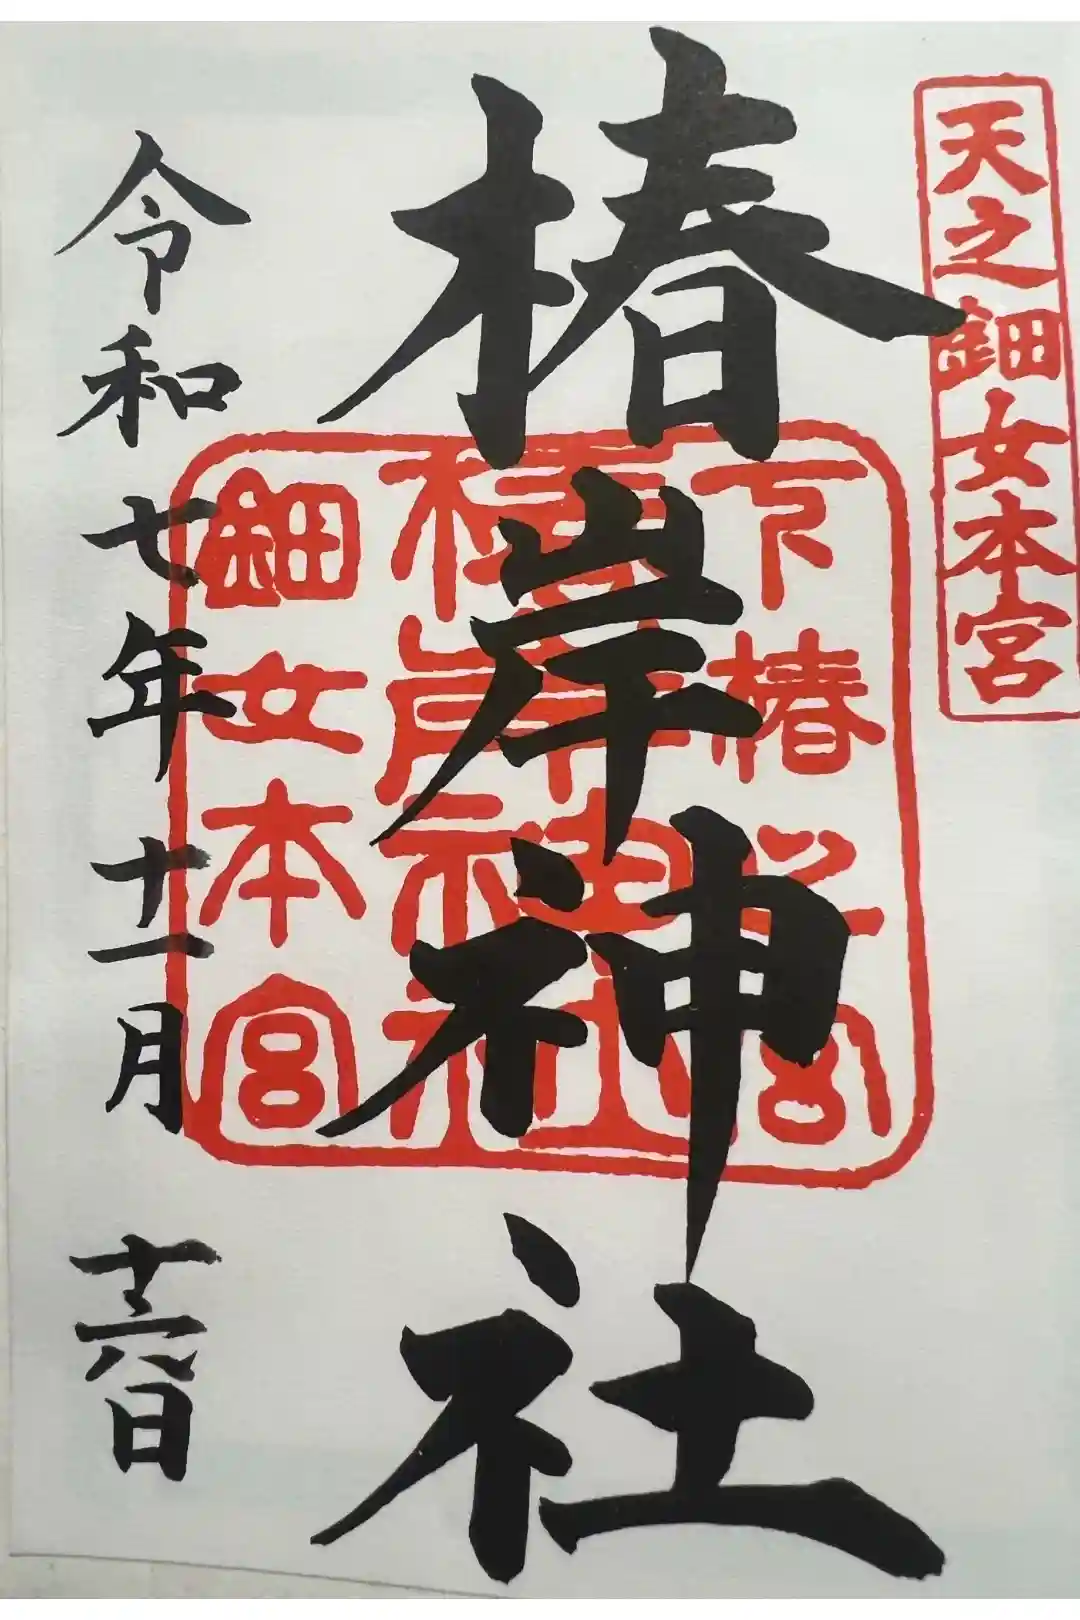 天之鈿女本宮
椿岸神社
下椿
椿岸神社
鈿女本宮
令和七年十一月十六日